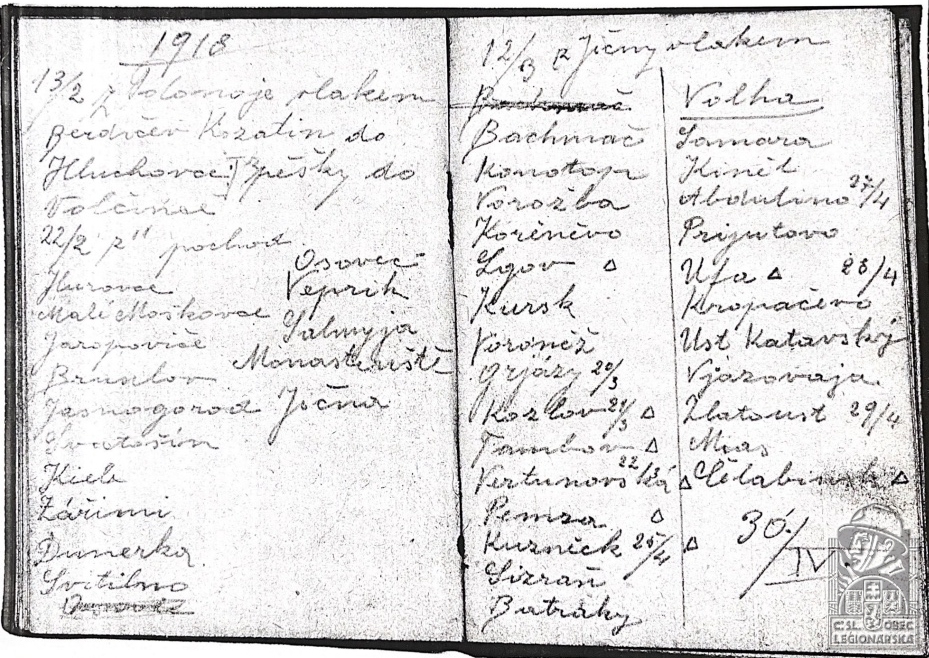 1918
13/2 z Polonoje vlakem
Berdičev Kozatin do
Hluchovce pěšky do
Volčinec
22/2 z" pochod
Hurovce
Malé Moškovce
Jaropoviče
Brusilov
Jasnogorod
Svatošin
Kieb
Zářimi
Dunerka
Svitilno
Osovec
Osovec
Veprik
Salnyja
Monasteriště
Jična
12/3 z Jičny vlakem
Bachmač
Bachmač
Konotop
Vorožba
Korěněvo
Lgov △
Kursk
Voroněž
Grjázy 20/3
Kozlov 21/3 △
Tambov △
Vertunovská 22/3 △
Pemza △
Kuzněck 25/4 △
Sizraň
Batraky
Volha
Samara
Kiněl
Abdulino 27/4
Prijutovo
Ufa △ 28/4
Kropačevo
Ust Katavský
Vjazovaja
Zlatoust 29/4
Mias
Čělabinsk △
30/IV.
ČSL. OBEC
LEGIONÁŘSKÁ